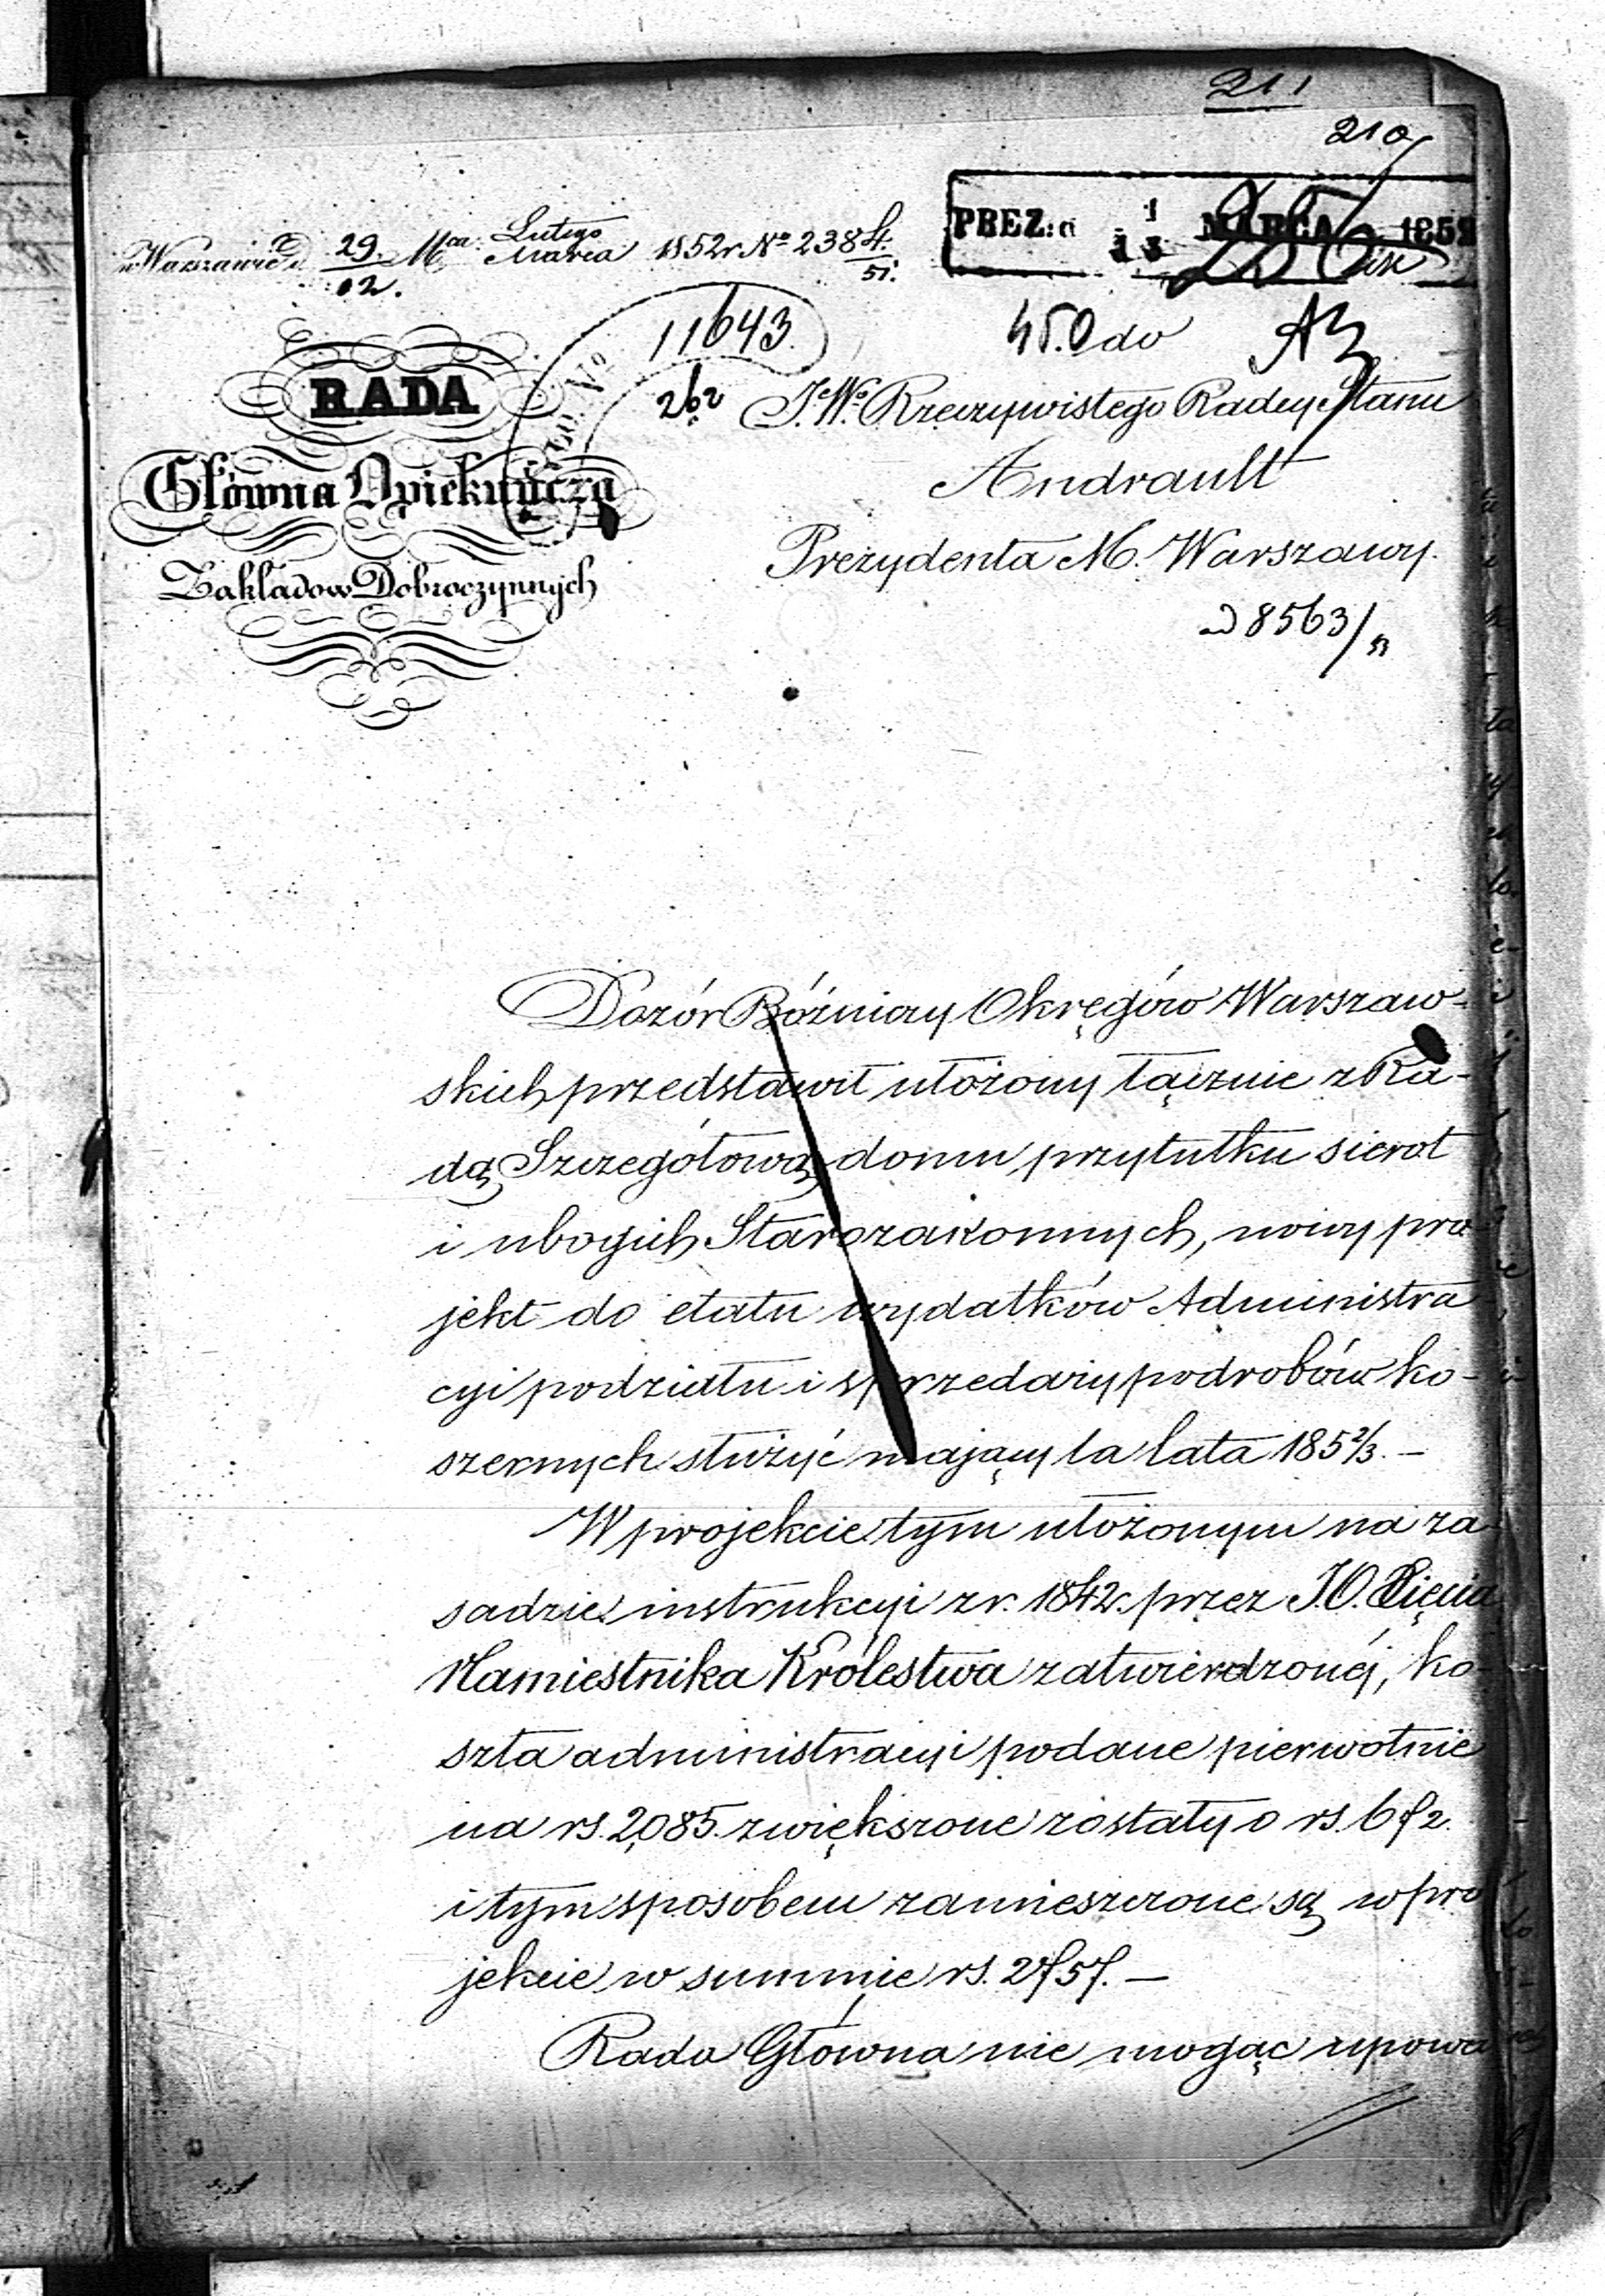 211
210
PREZ: d 1/13 MARCA 1852
w Warszawie d. 29/12. Mca Lutego/Marca 1852 r. No 2384/51.
11643.
450 do
262
J.W. Rzeczywistego Radcy Stanu
Andrault
Prezydenta M. Warszawy.
ad 8563/51
RADA
Główna Opiekuńcza
Zakładów Dobroczynnych
Dozór Bóżniczy Okręgów Warszaw-
skich przedstawił ułożony łącznie z Ra-
dą Szczegółową domu przytułku sierot
i ubogich Starozakonnych, nowy pro
jekt do etatu wydatków Administra
cyi podziału i sprzedaży podrobów ko-
szernych służyć mający la lata 185 2/3. —
W projekcie tym ułożonym na za
sadzie instrukcyi z r. 1842 r. przez J.O. Xięcia
Namiestnika Królestwa zatwierdzonéj, ko-
szta administracyi podane pierwotnie
na rs. 2,085. zwiększone zostały o rs. 672.
i tym sposobem zamieszczone są w pro
jekcie w summie rs. 2757. —
Rada Główna nie mogąc upowa